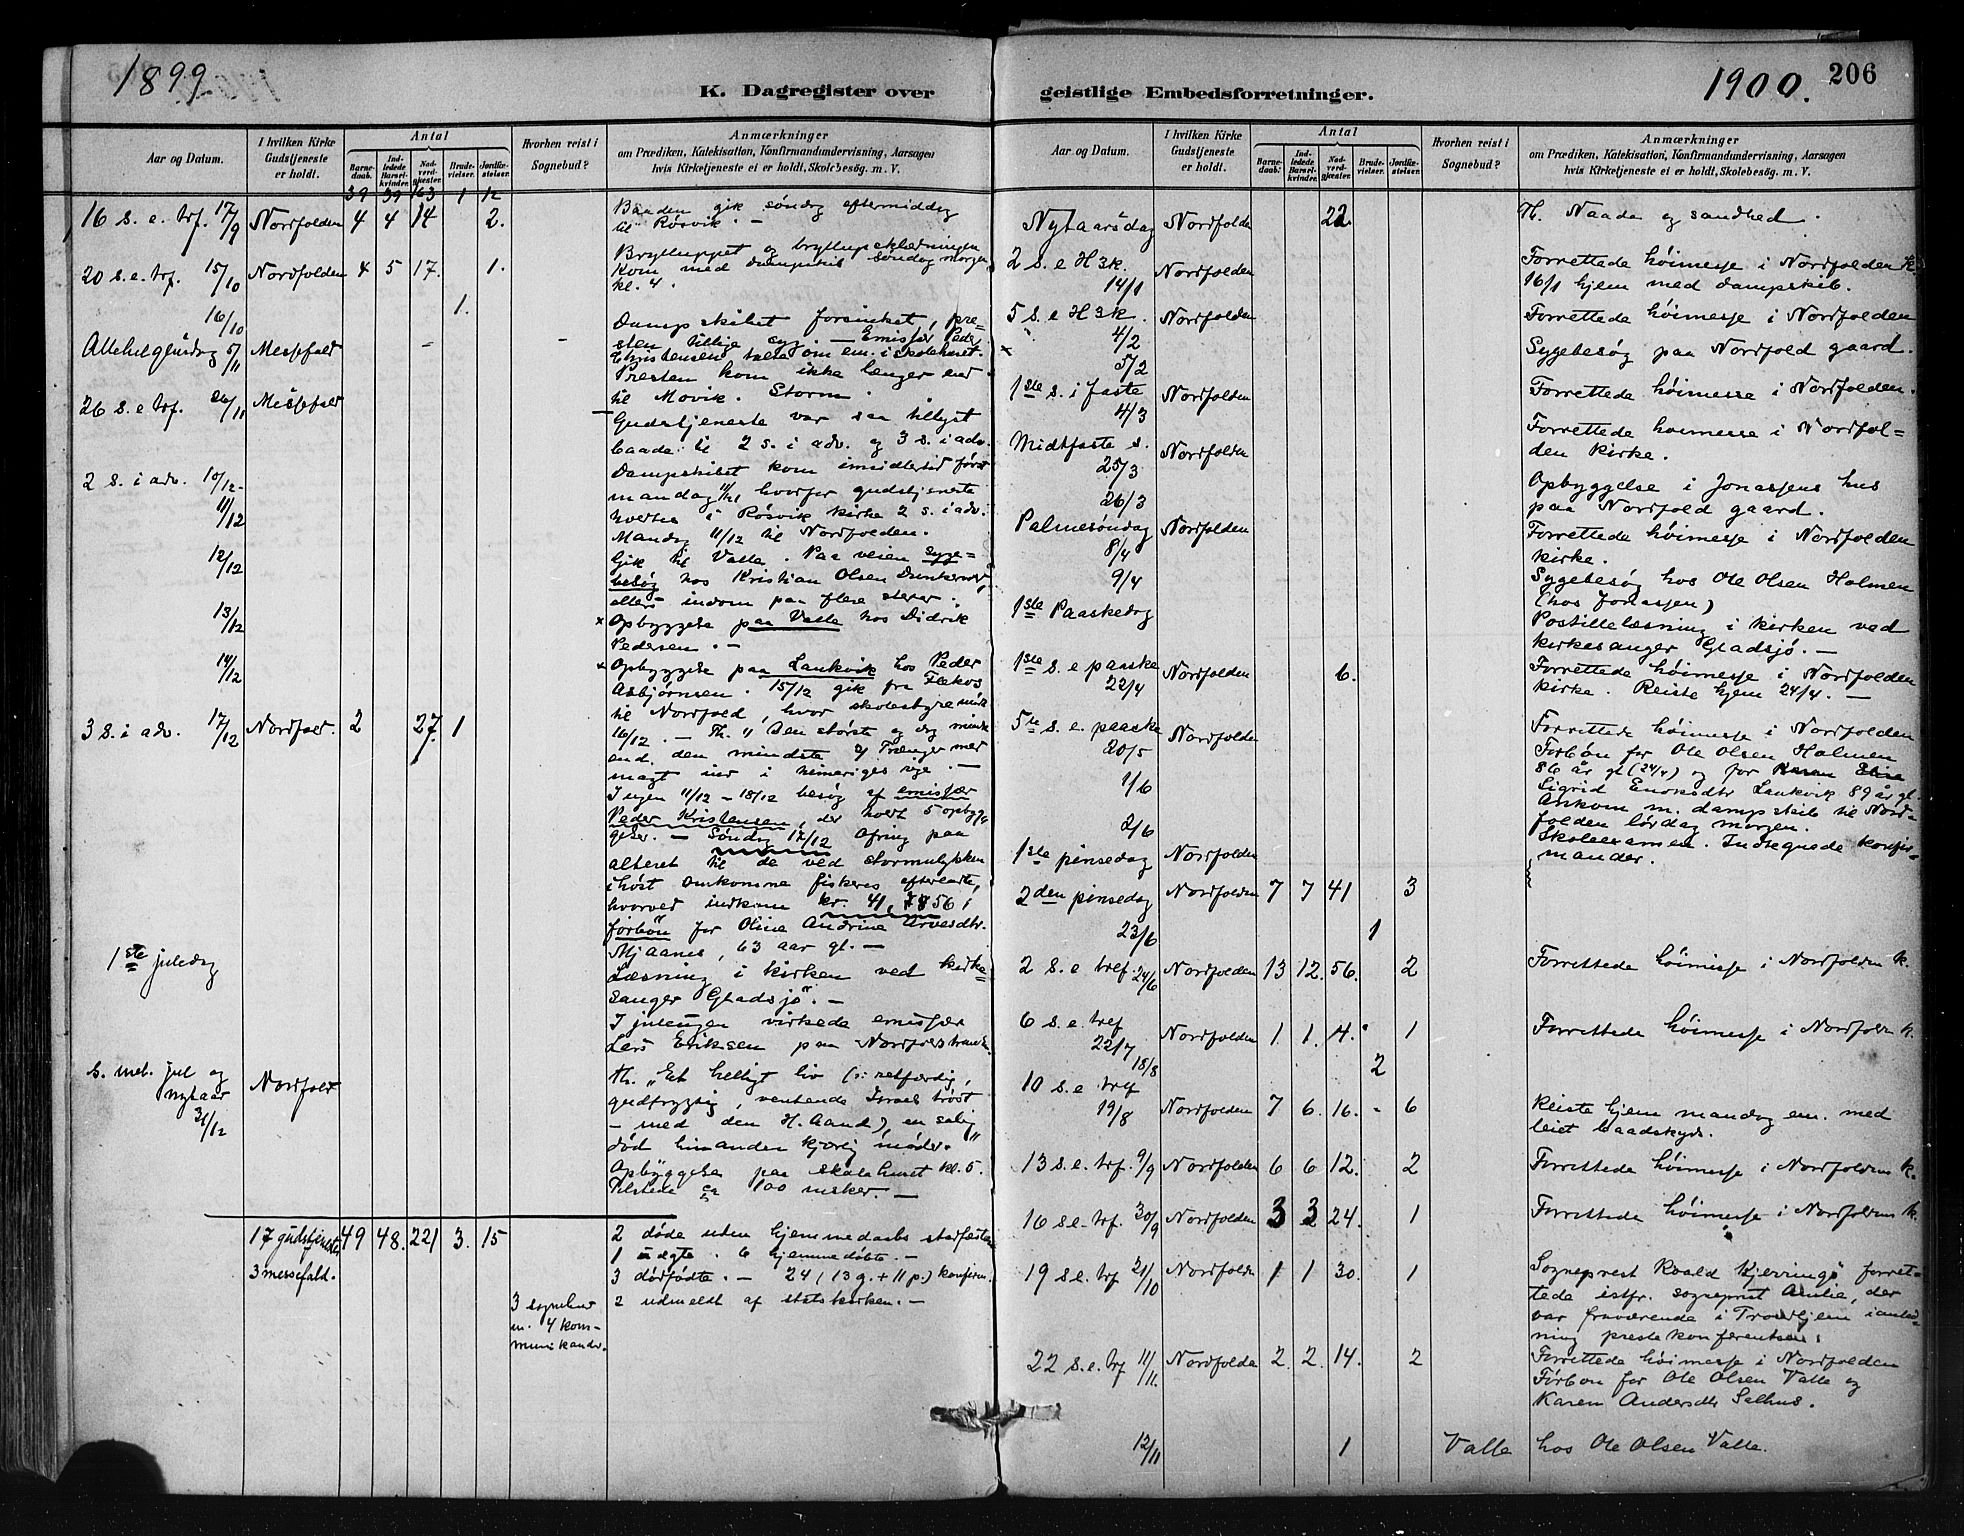 1899
K. Dagregister over
Aar og Datum.
I hvilken Kirke Gudstjeneste er holdt.
Antal
Barnedaab.
Indledede Barselkvinder.
Nadverdgjester.
Brudevielser.
Jordfæstelser.
Hvorhen reist i Sognebud?
Anmærkninger
om Prædiken, Katekisation, Konfirmandundervisning, Aarsagen
hvis Kirketjeneste ei er holdt, Skolebesøg. m. V.
39 39 163 1 12
16 s. e. trf. 17/9 Nordfolden 4 4 14 2.
Baaden gik søndag eftermiddag
til Røsvik. —
20 s. e. trf. 15/10 Nordfolden 4 5 17. 1.
Brylluppet og
kom med dampskib søndag morgen
kl. 4.
16/10 1.
Allehelgensdag 5/11 Messefald
Dampskibet forsinket, pre-
sten tillige syg. — Emisær Peder
Christensen talte om em. i skolehuset.
26 s. e. trf. 26/11 Messefald
Presten kom ikke længer end
til Movik. Storm.
Gudstjeneste var saa tillyst
baade til 2 s. i adv. og 3 s. i adv.
2 s. i adv. 10/12
Dampskibet kom imidlertid først
mandag 11/12, hvorfor gudstjeneste
holdtes i Røsvik kirke 2 s. i adv.
11/12
Mandag 11/12 til Nordfolden.
12/12
Gik til Valle. Paa veien syge-
besøg hos Kristian Olsen
ellers indom paa flere steder.
13/12
× Opbyggelse paa Valle hos Didrik
Pedersen. —
14/12
× Opbyggelse paa Lankvik hos Peder
Asbjørnsen. 15/12 gik fra
til Nordfold, hvor skolestyremøde
16/12. —
3 s. i adv. 17/12 Nordfold. 2 27. 1
Th. "Den største og dog mindre
end den mindste" Trænger med
magt ind i himeriges rige. —
I ugen 11/12 – 18/12 besøg af emisær
Peder Kristensen, der holdt 5 opbyg-
gelser. — Søndag 17/12 ofring paa
alteret til de ved stormulykken
i høst omkomne fiskeres efterladte,
hvorved indkom kr. 41, 56!
forbøn for Oline Andrine Arvesdtr.
Mjaanes, 63 aar gl. —
1ste juledag
Læsning i kirken ved kirke-
sanger Gladsjø. —
I juleugen virkede emisær
Lars Eriksen paa Nordfoldstranden.
s. mel. jul og nytaar 31/12 Nordfold
Th. "Et helligt liv (ɔ: retfærdig,
gudfrygtig, ventende Israels trøst
— med den H. Aand), en salig
død hinanden kjærlig møder."
Opbyggelse paa skolehuset kl. 5.
Tilstede ca 100 nsker. —
17 gudstjenester 49 48. 221 3. 15
3 messefald.
3 sognebud
m. 4 kom-
munikander.
2 døde uten hjemmedaabs stadfæstelse
1 uægte. 6 hjemmedøbte. —
3 dødfødte. — 24 (13 g. + 11 p.) konfirm.
2 udmeldt af statskirken. —
geistlige Embedsforretninger.
1900.
206
Aar og Datum.
I hvilken Kirke Gudstjeneste er holdt.
Antal
Barnedaab.
Indledede Barselkvinder.
Nadverdgjester.
Brudevielser.
Jordfæstelser.
Hvorhen reist i Sognebud?
Anmærkninger
om Prædiken, Katekisation, Konfirmandundervisning, Aarsagen
hvis Kirketjeneste ei er holdt, Skolebesøg. m. V.
Nytaarsdag Nordfolden 22.
Th. Naade og sandhed.
2 s. e H3k. 14/1 Nordfolden
Forrettede høimesse i Nordfolden K.
16/1 hjem med dampskib.
5 s. e H3k. 4/2 Nordfolden
Forrettede høimesse i Nordfolden
× 5/2
Sygebesøg paa Nordfold gaard.
1ste s. i faste 4/3 Nordfolden
Forrettede høimesse i Nordfolden.
Midtfaste s. 25/3 Nordfolden
Forrettede høimesse i Nordfol=
den kirke.
26/3
Opbyggelse i Jonassens hus
paa Nordfold gaard.
Palmesøndag 8/4 Nordfolden
Forrettede høimesse i Nordfolden
kirke.
9/4
Sygebesøg hos Ole Olsen Holmen
(hos Jonassen)
1ste Paaskedag
Postillelæsning i kirken ved
kirkesanger Gladsjø. —
1ste s. e paaske 22/4 Nordfolden 6.
Forrettede høimesse i Nordfolden
kirke. Reiste hjem 24/4. —
5te s. e. paaske 20/5 Nordfolden
Forrettede høimesse i Nordfolden
Forbøn for Ole Olsen Holmen
86 år gl (24/4) og for
Sigrid Enoksdtr Lankvik 89 år gl.
1/6
Ankom m. dampskib til Nord-
folden lørdag morgen.
2/6
Skoleexamen. Indtegnede konfir-
mander.
1ste pinsedag Nordfolden
2den pinsedag Nordfolden 7 7 41 3
23/6 1
2 s. e tref. 24/6 Nordfolden 13 12. 56. 2
Forrettede høimesse i Nordfolden k.
6 s. e. tref 22/7 Nordfolden 1. 1. 4. 1
Forrettede høimesse i Nordfolden k.
18/8 2
10 s. e tref 19/8 Nordfolden 7 6. 16. - 6
Reiste hjem mandag em. med
leiet baadskyds.
13 s. e. trf. 9/9 Nordfolden 6 6 12. 2
Forrettede høimesse i Nordfolden k.
16 s. e. trf. 30/9 Nordfolden 3 3 24. 1
Forrettede høimesse i Nordfolden k.
19 s. e. trf 21/10 Nordfolden 1 1 30. 1
Sogneprest Roald forret-
tede istf. sogneprest der
var fraværende i Trondhjem i anled-
ning prestekonferentsen.
22 s. e. trf 11/11. Nordfolden 2. 2. 14. 2
Forrettede høimesse i Nordfolden
Førbøn for Ole Olsen Valle og
Karen Andersdtr Salhus.
12/11 1 Valle hos Ole Olsen Valle.